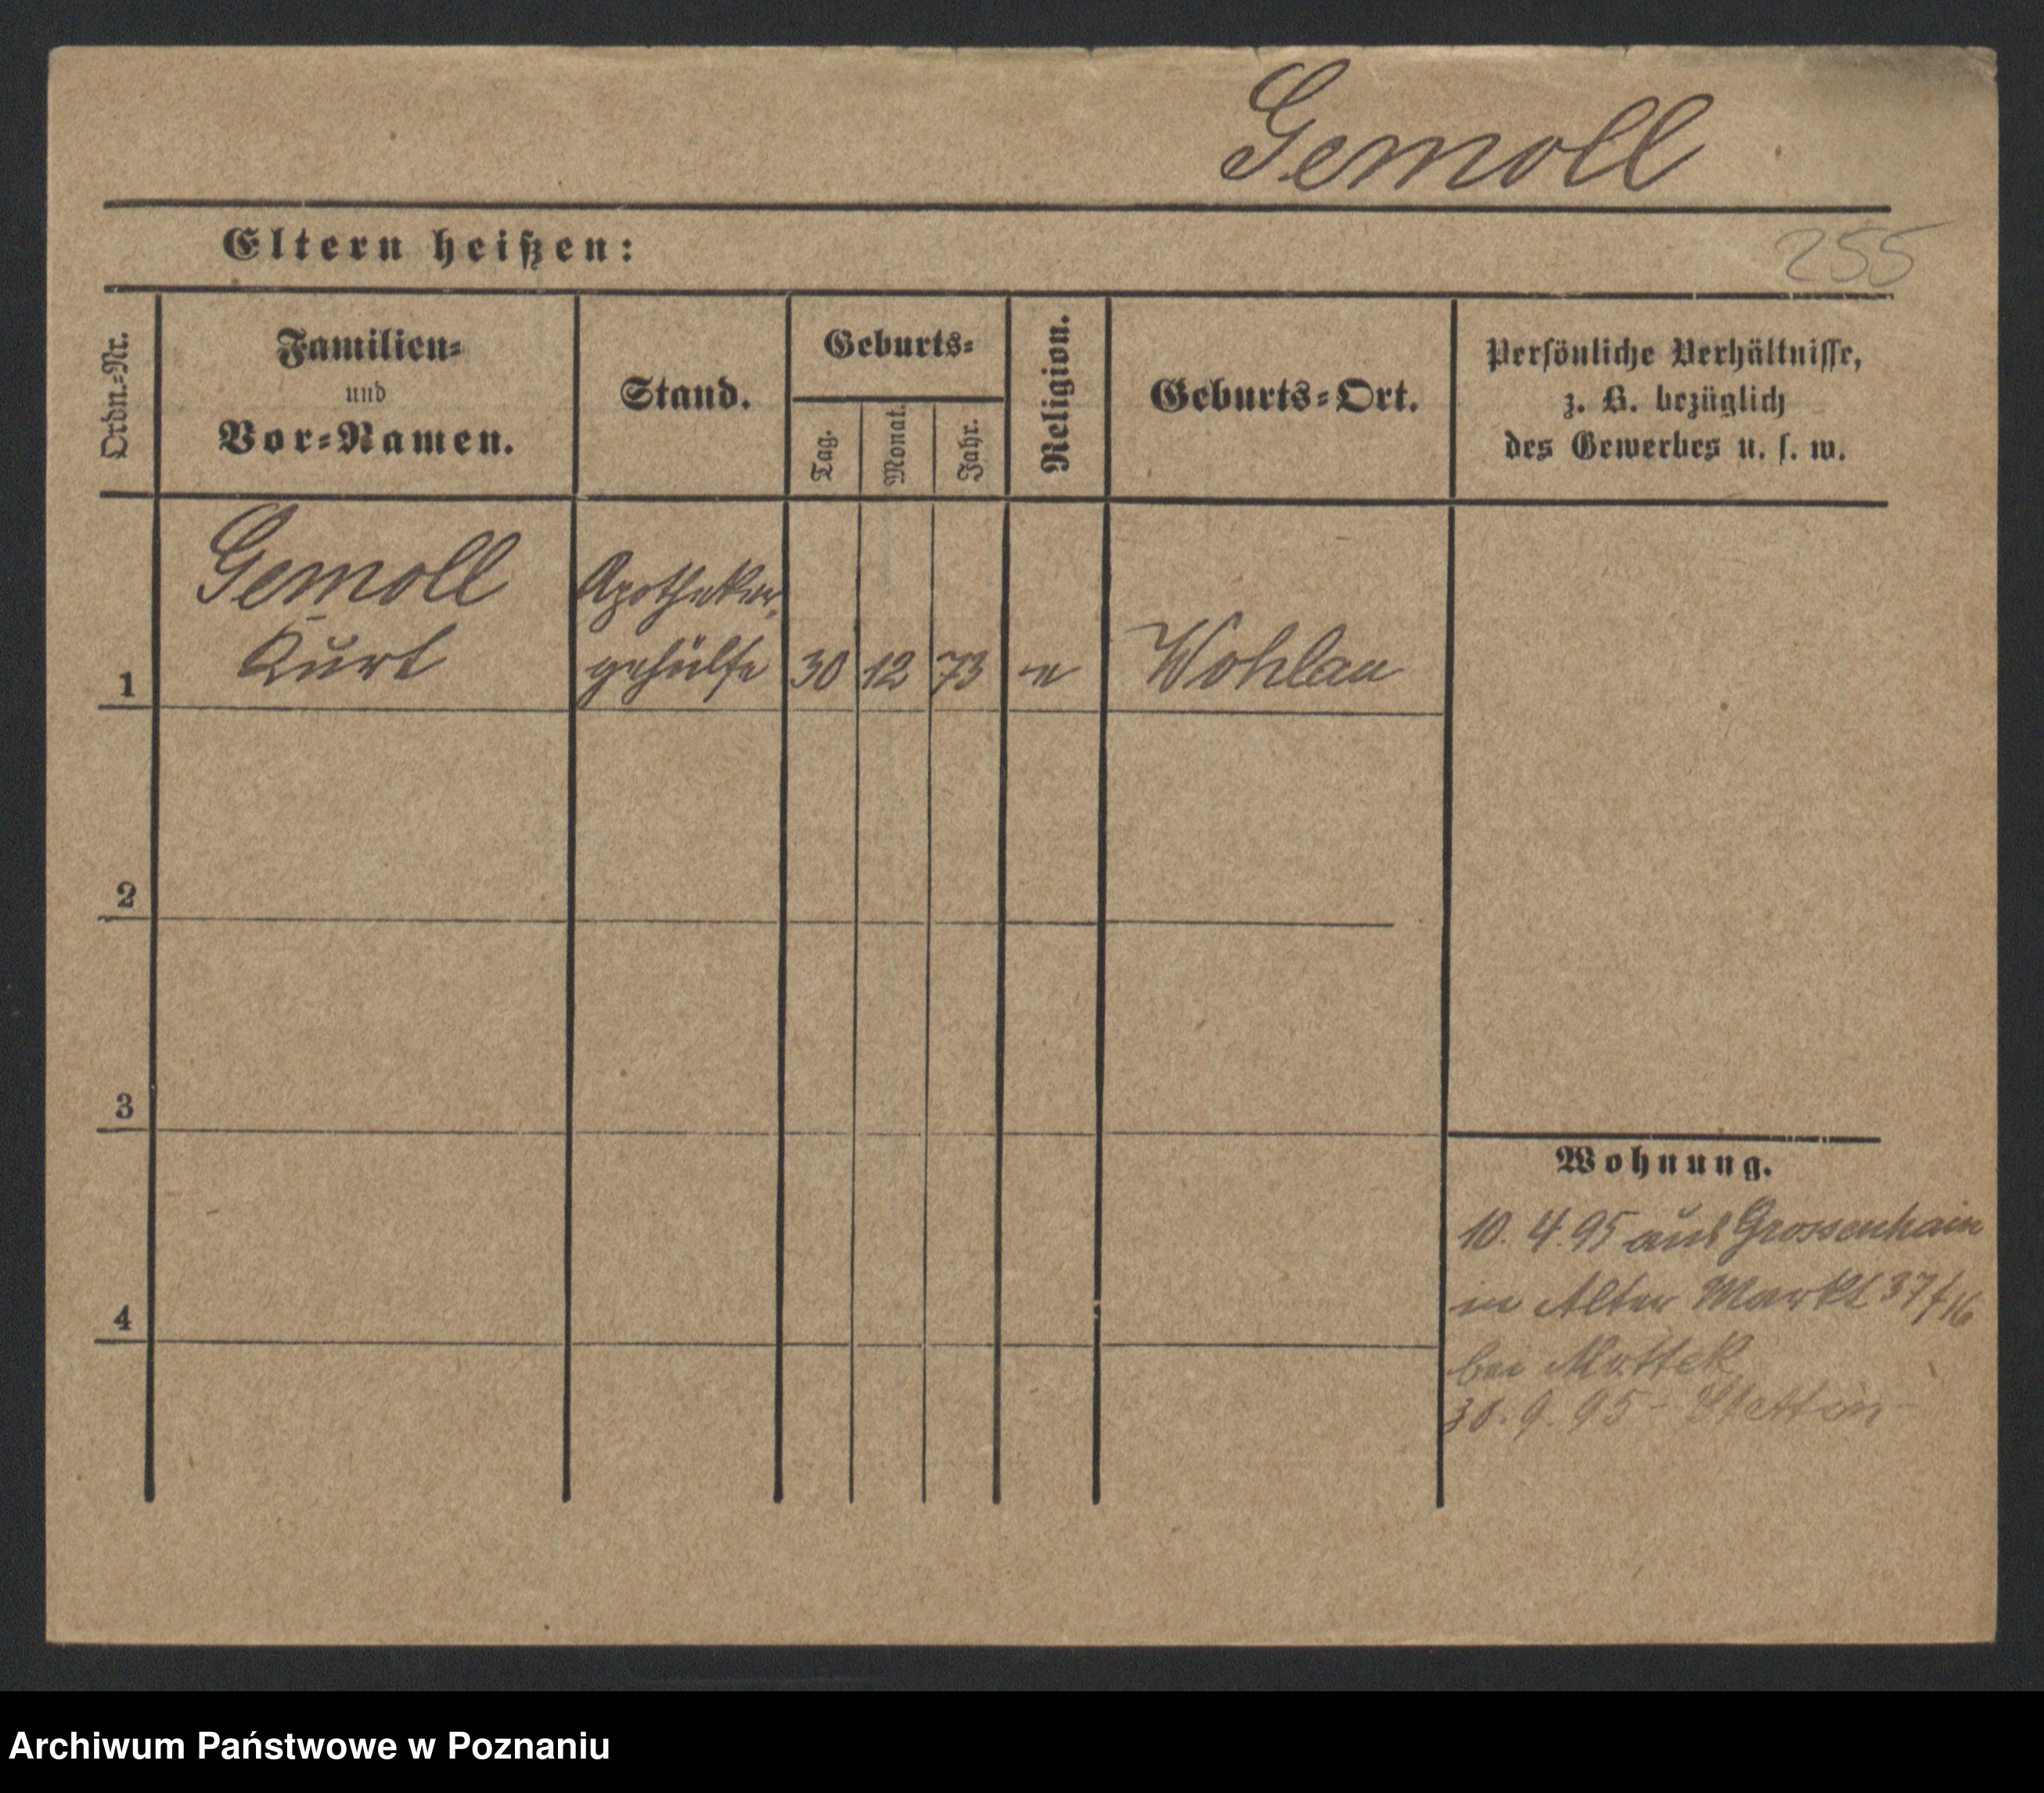 Gemoll
Eltern heißen:
255
Ordn.-Nr.
Familien-
und
Vor-Namen.
Stand.
Geburts-
Tag.
Monat.
Jahr.
Religion.
Geburts-Ort.
Persönliche Verhältnisse,
z. B. bezüglich
des Gewerbes u. s. w.
Gemoll Apotheker,
1 Kurt gehülfe 30 12 73 e Wohlau
2
3
Wohnung.
10. 4. 95 aus Grossenhain
4
in Alter Markt 37/16
bei Mottek
30. 9. 95 - Stettin
Archiwum Państwowe w Poznaniu